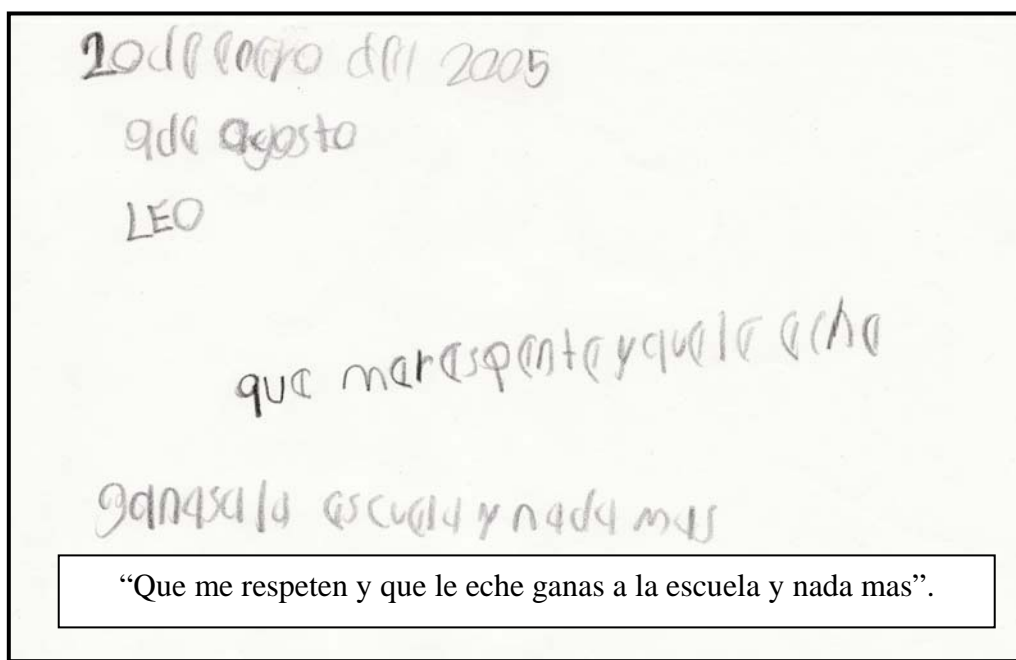 20 de enero del 2005
9 de agosto
LEO
que merespente y que le eche
ganasala escuela y nada mas
“Que me respeten y que le eche ganas a la escuela y nada mas”.